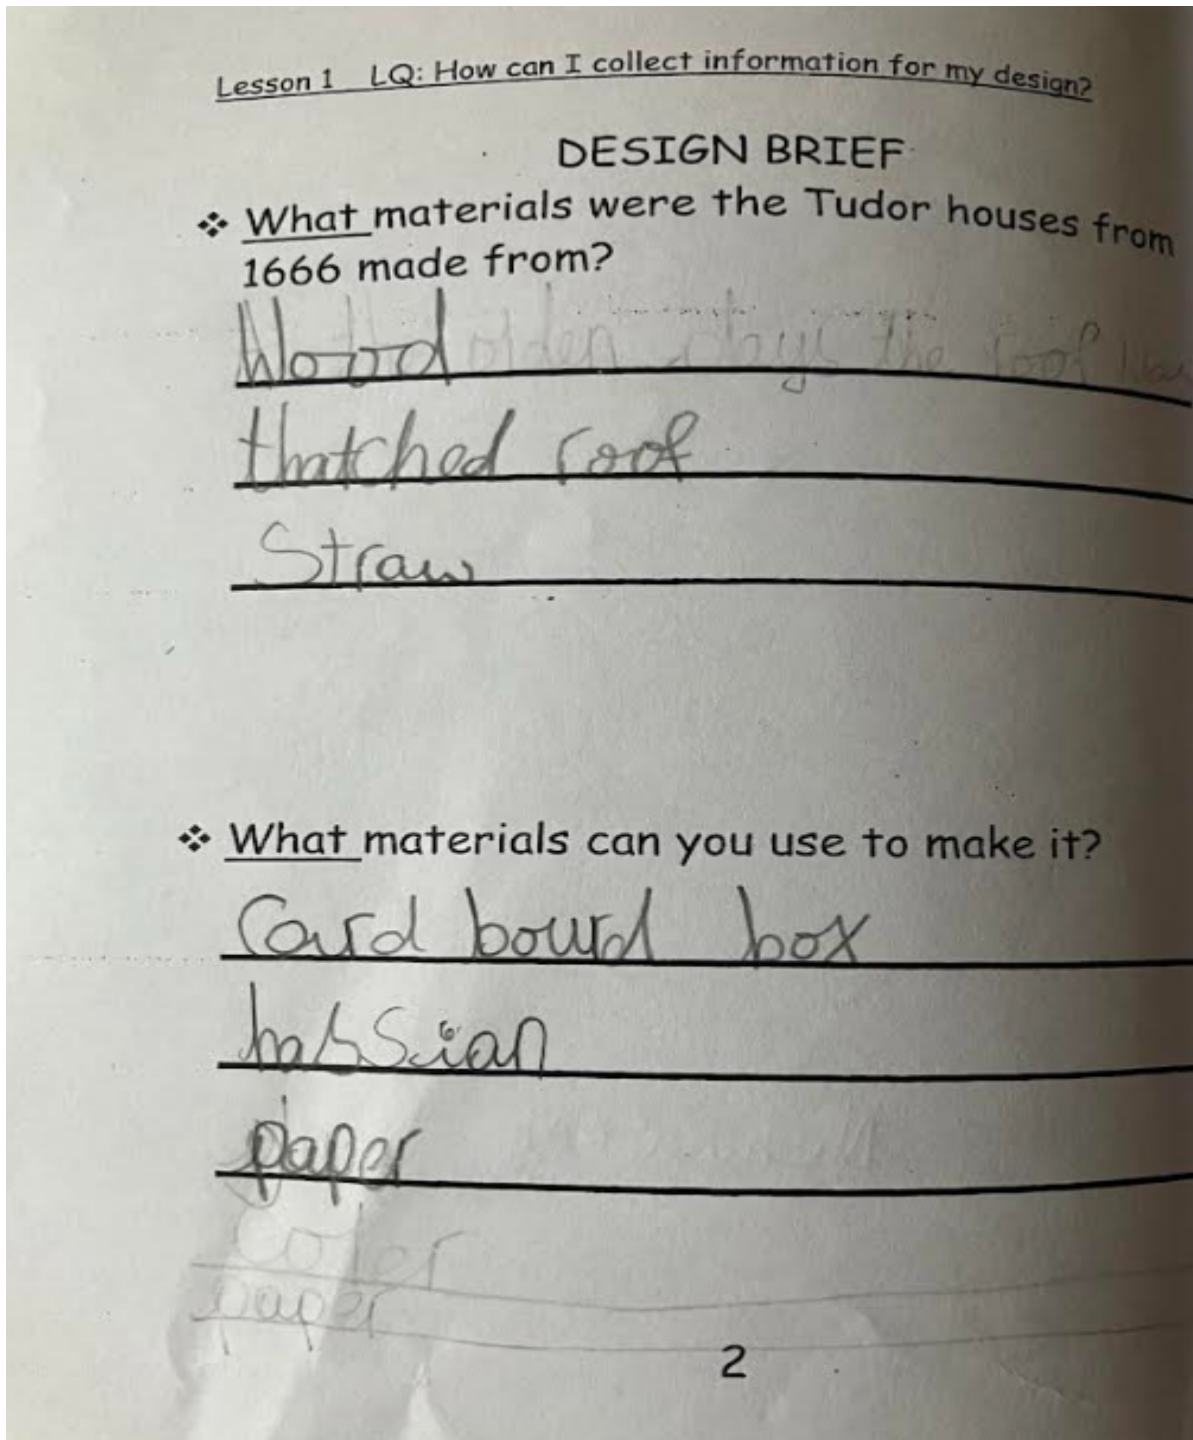 Lesson 1 LQ: How can I collect information for my design?
DESIGN BRIEF
❖ What materials were the Tudor houses from
1666 made from?
Wood olden days the roof
thatched roof
Straw
❖ What materials can you use to make it?
Card bourd box
paper
paper
2